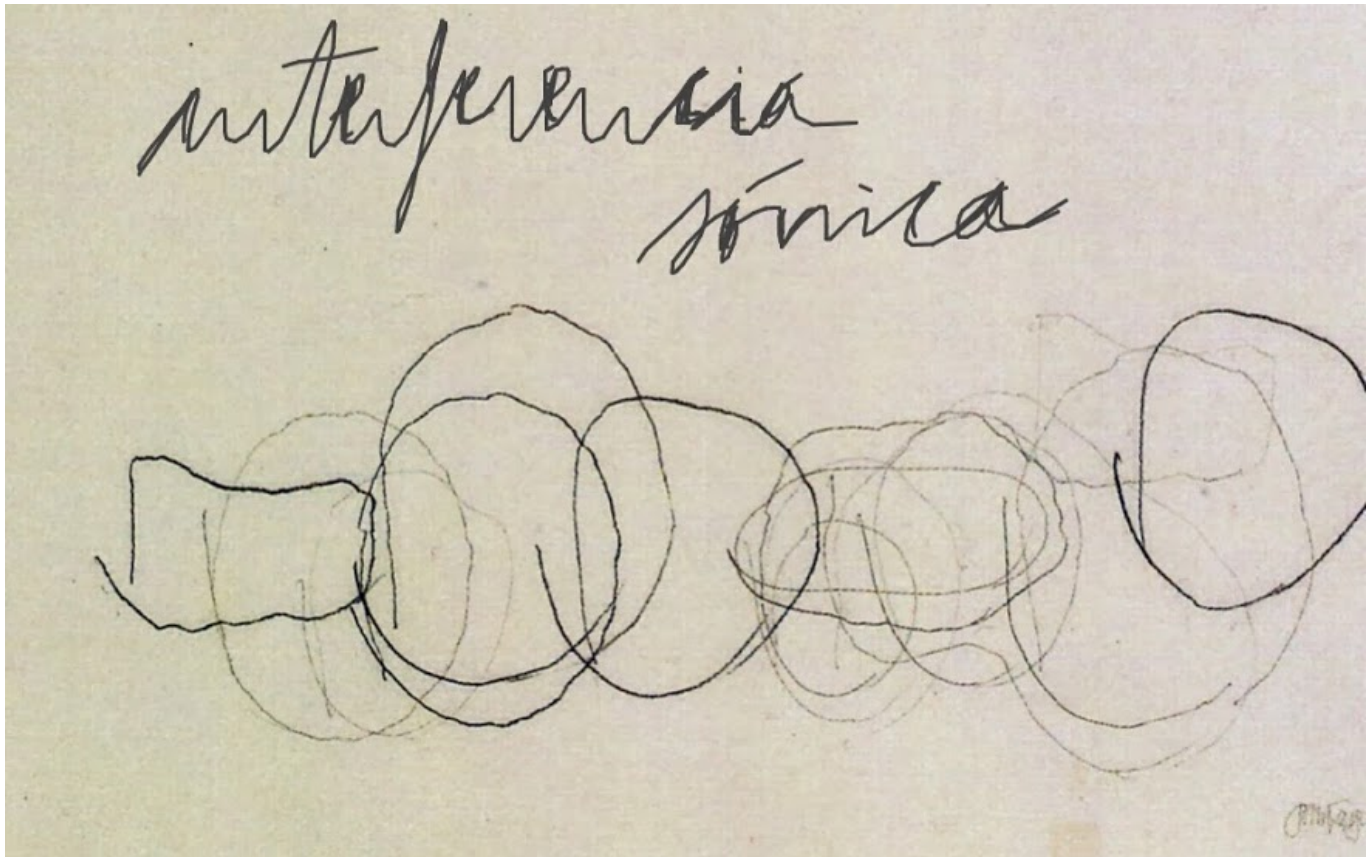 interferencia
sónica